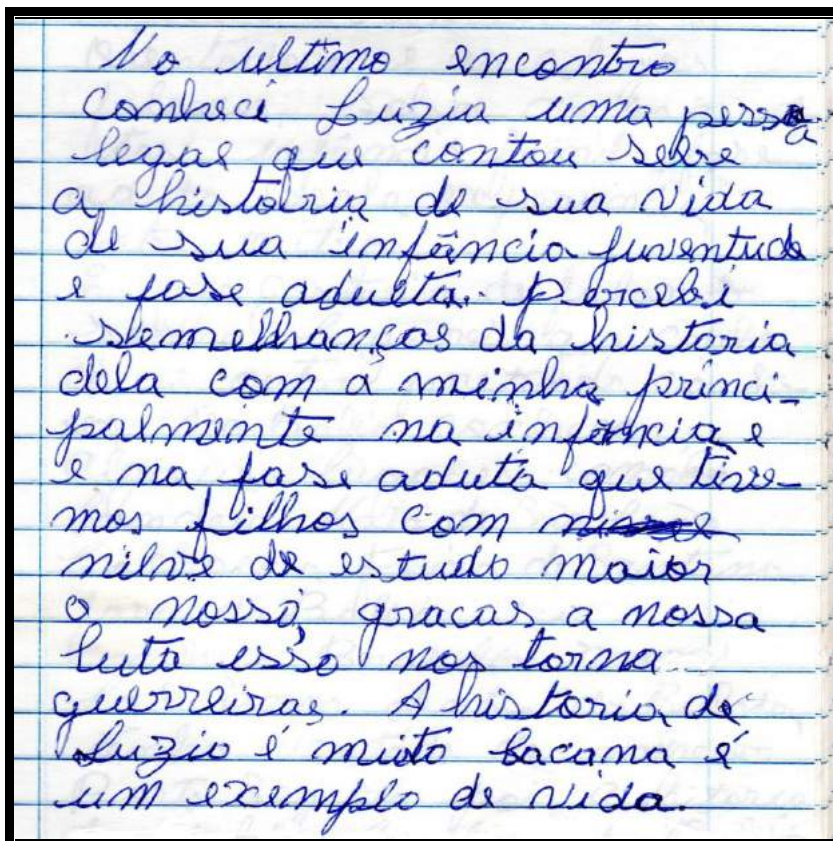 No ultimo encontro
conheci Luzia uma pessoa
legal que contou sobre
a histôria de sua vida
de sua infância juventude
e fase adulta. percebi
semelhanças da historia
dela com a minha princi-
palmente na infância e
e na fase aduta que tive-
mos filhos com
nilve de estudo maior
o nosso, gracas a nossa
luta esso nos torna
guerreiras. A historia de
Luzia é muito bacana é
um exemplo de vida.